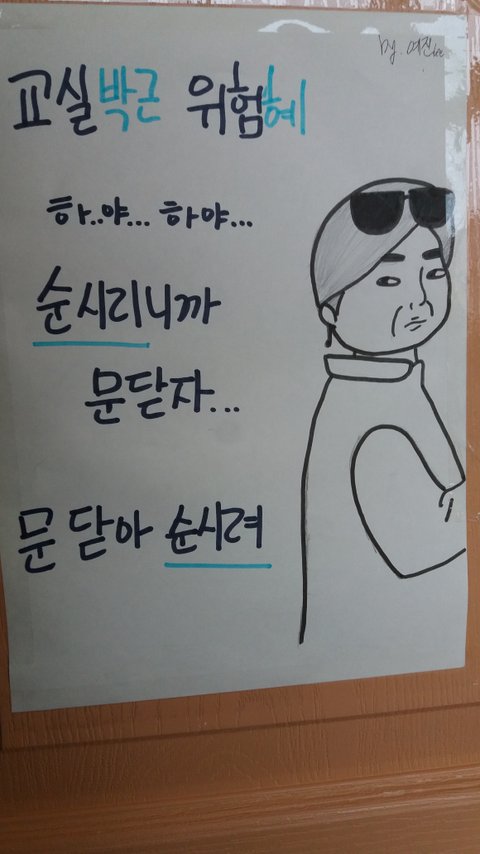 by. 여진
교실박근 위험혜
하..야... 하야...
순시리니까
문닫자...
문 닫아 순시려